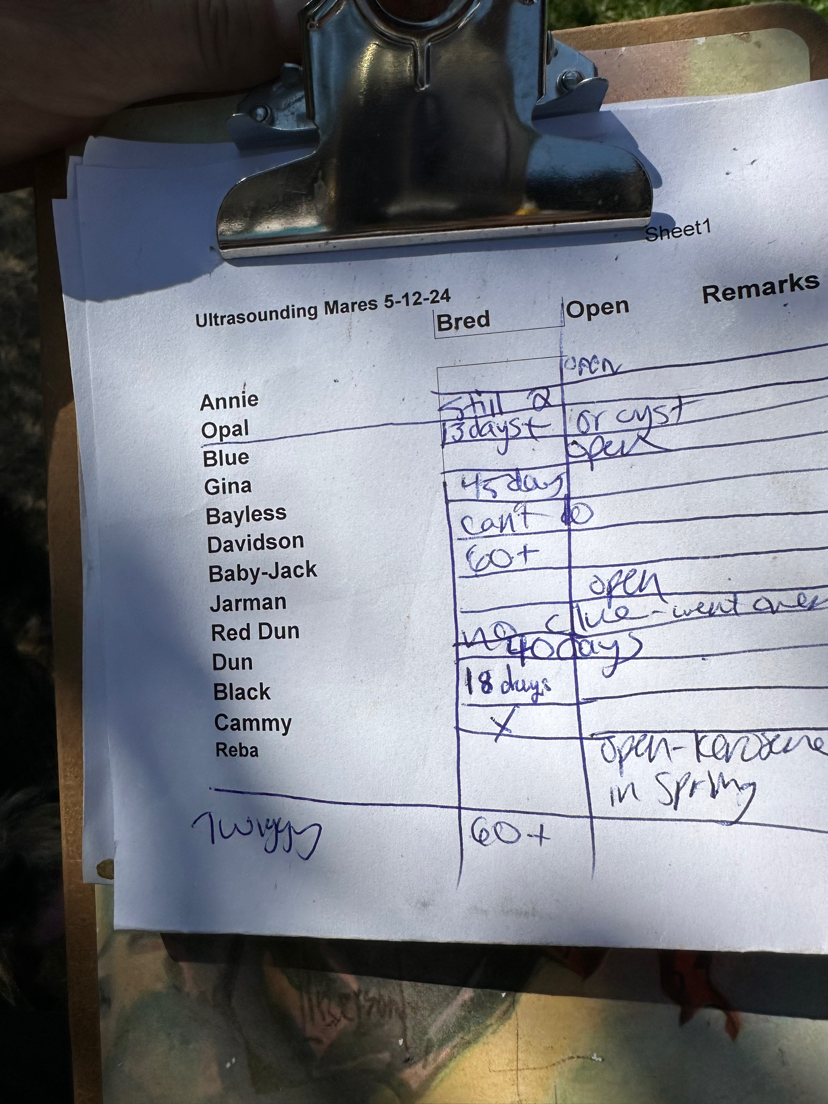 Sheet1
Ultrasounding Mares 5-12-24
Bred Open Remarks
Annie open
Opal Still 2
13 days+ or cyst
Blue open
Gina 45 days
Bayless can't do
Davidson 60+
Baby-Jack open
Jarman no clue - went over
Red Dun 40 days
Dun 18 days
Black X
Cammy open - Kerosene
Reba in Spring
Twiggy 60+